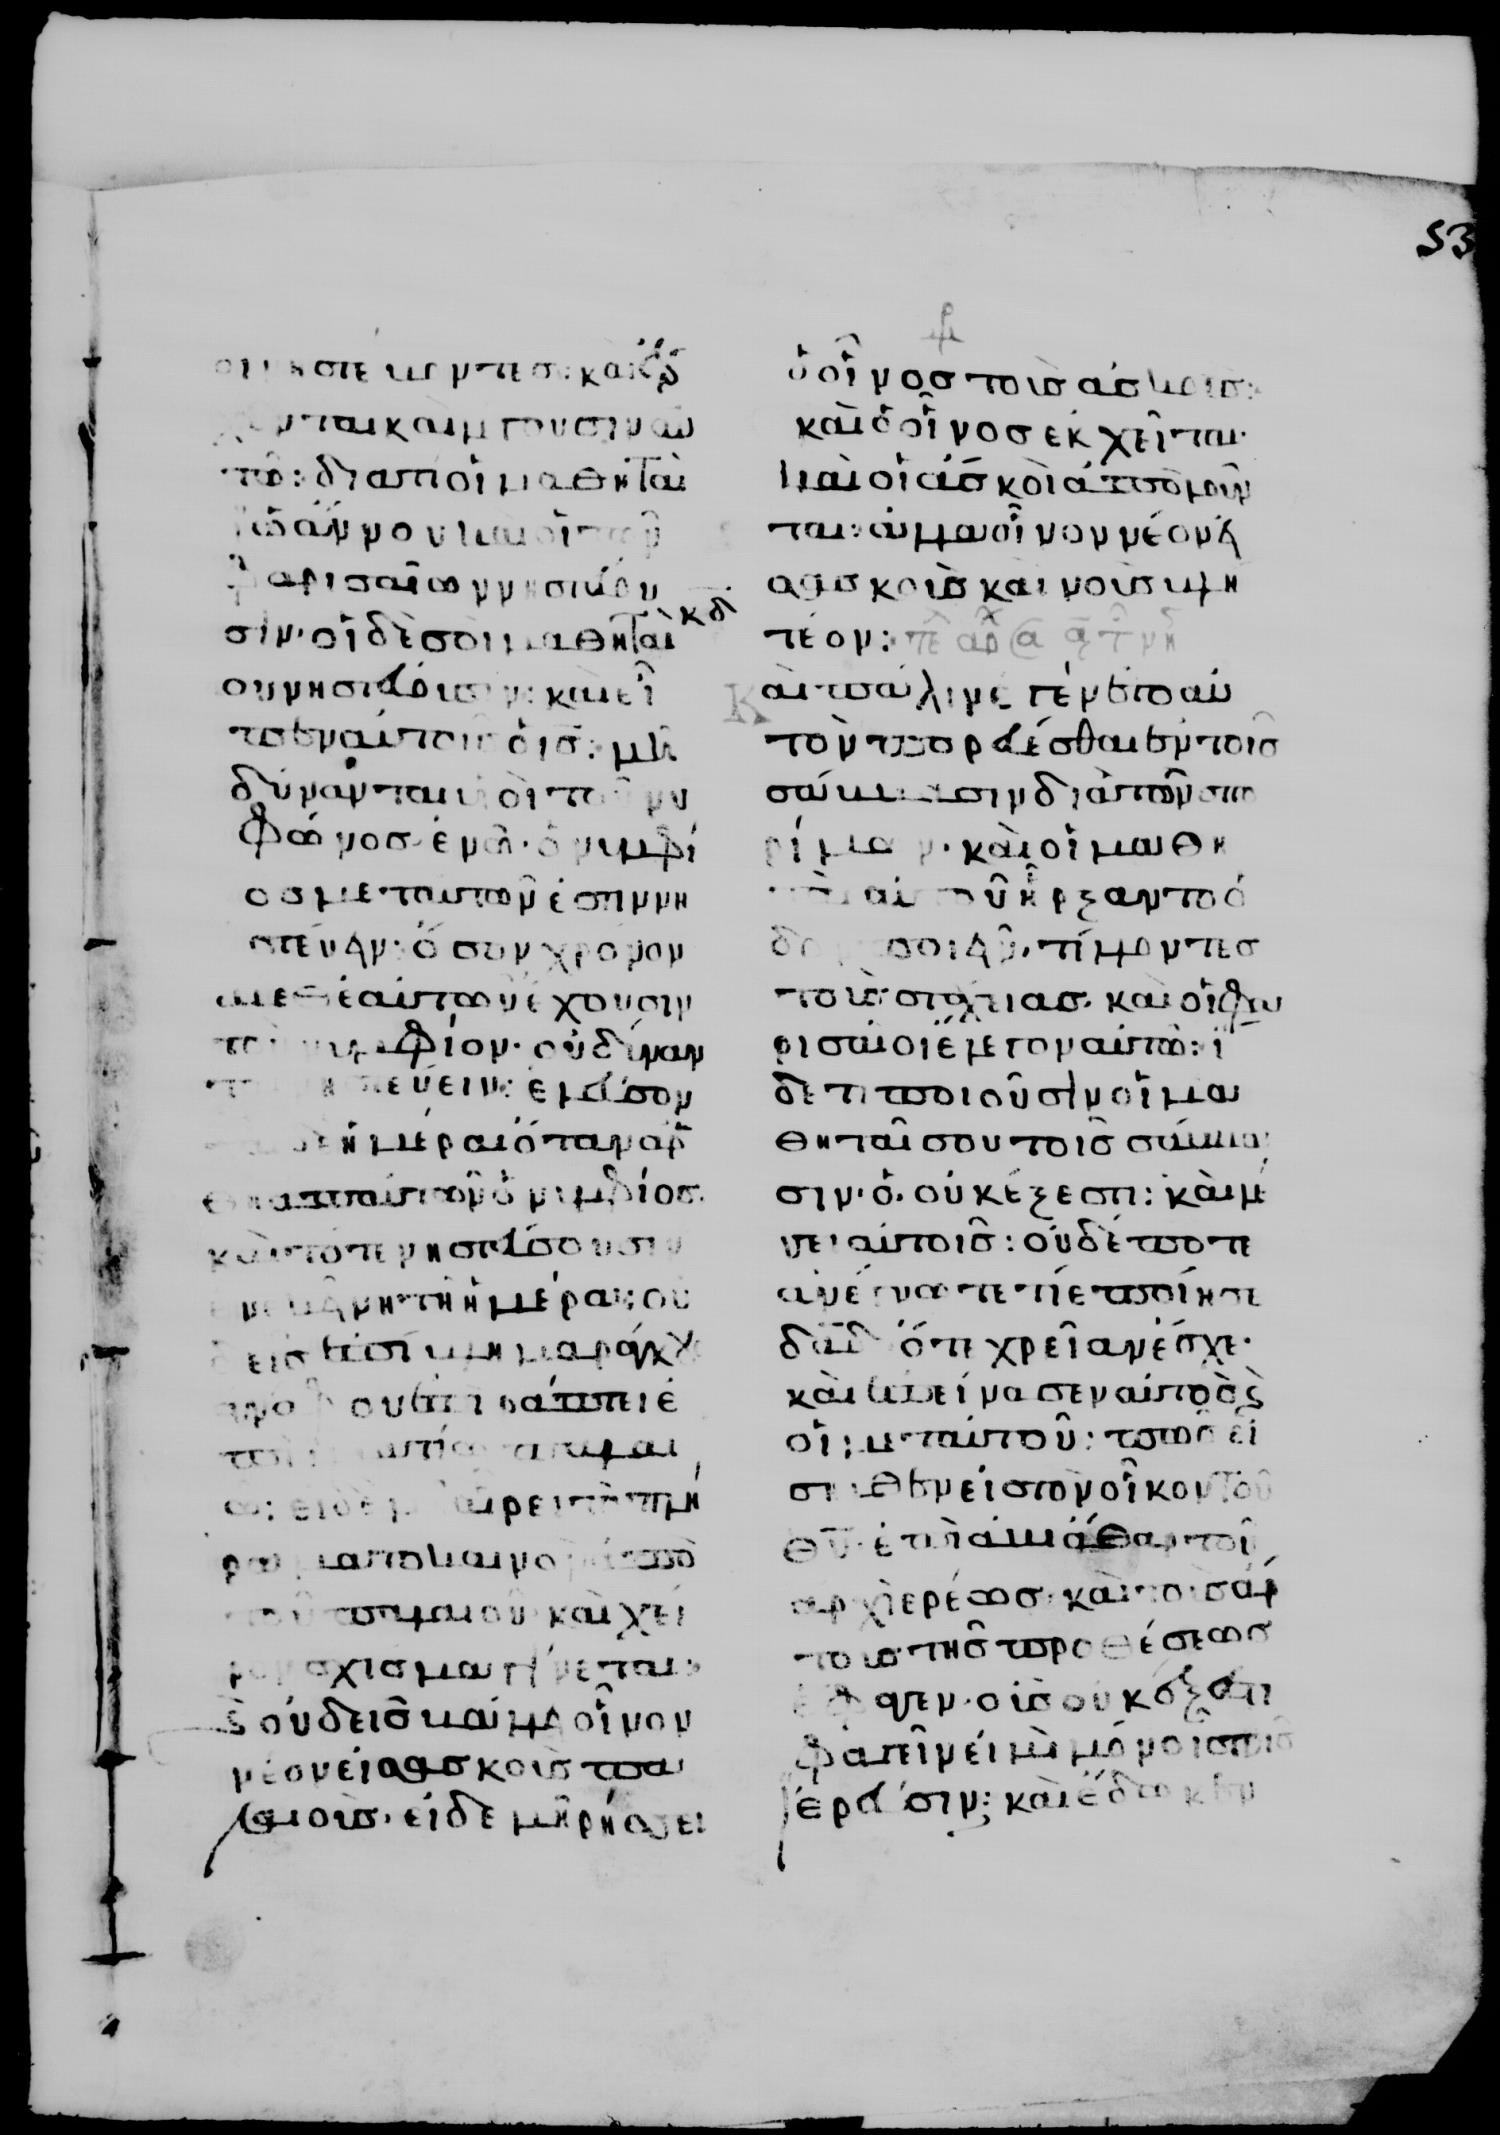 53
οι νηστεύοντες· και ἔρ
χονται καὶ λέγουσιν αὐ
τῶ: διατί οἱ μαθηταὶ
Ἰωάννου καὶ οἱ τῶν
φαρισαίων νηστεύου
σιν· οἱ δὲ σοὶ μαθηταὶ
κδ
ου νηστεύουσιν: καὶ εἶ
πεν αὐτοῖς ὁ ις̅: μὴ
δύνανται υἱοὶ τοῦ νυ
μφῶνος ἐν ὧ ὁ νυμφί
ος μετ αυτῶν ἐστι νη
στεύειν: ὅσον χρόνον
μεθ ἑαυτῶν ἔχουσιν
τὸν νυμφίον· οὐ δύναν
ται νηστεύειν: ἐλεύσον
ται δε ἡμέραι ὅταν ἀρ
θῆ απ αὐτῶν ὁ νυμφίος·
καὶ τότε νηστεύσουσιν
ἐν ἐκείνη τῆ ἡμέρα: οὐ
δεὶς ἐπίβλημα ράκκους
ἀγνάφου ἐπι ράπτει ἐ
πὶ ἱματίω παλαι
ῶ: εἰ δὲ μὴ αἴρει τὸ πλή
ρωμα το καινὸν ἀπὸ
τοῦ παλαιοῦ· καὶ χεῖ
ρον σχίσμα γίνεται:
ὸ οὐδεὶς βάλλει οἶνον
νέον εἰς ασκοὺς πα
λαιοὺς· εἰ δε μὴ ρήσσει
ὁ οἶνος τοὺς ἀσκούς:
καὶ ὁ οἶνος ἐκχεῖται·
καὶ οἱ ἀσκοὶ ἀπολοῦν
ται: ἀλλα οἶνον νέον εἰς
ασκοὺς καινοὺς βλη
τέον:
Καὶ πάλιν ἐγένετο αὐ
τὸν πορεύεσθαι ἐν τοῖς
σάββασιν διὰ τῶν σπο
ρίμων· καὶ οἱ μαθη
ταὶ αὐτοῦ ἤρξαντο ὁ
δὸν ποιεῖν· τίλλοντες
τοὺς στάχυας· καὶ οἱ φα
ρισαῖοι ἔλεγον αὐτῶ: ἴ
δε τι ποιοῦσιν οἱ μα
θηταί σου τοῖς σάββα
σιν· ὅ· οὐκ έξεστι: καὶ λέ
γει αὐτοῖς: οὐδέποτε
ἀνέγνωτε τί ἐποίησε
δα̅δ ὅτε χρείαν ἔσχε·
καὶ ἐπείνασεν αὐτὸς
οἱ μετ αὐτοῦ: πῶς εἰ
σῆλθεν εἰς τὸν οἶκον τοῦ
θυ̅· ἐπὶ ἀβιάθαρ τοῦ
ἀρχιερέως· καὶ τοὺς ἄρ
τους τῆς προθέσεως
ἔφαγεν· οὓς οὐκ ἔξεστι
φαγεῖν εἰ μὴ μόνοις τοῖς
ἱερεύσιν: καὶ ἔδωκεν